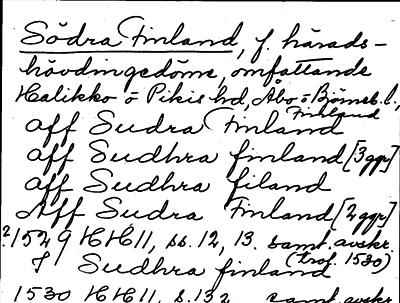 Södra Finland, f. härads-
hövdingedöme, omfattande
Halikko o Pikis hd, Åbo o Björneb. l.,
Finland
aff Sudra Finland
aff Sudhra finland [3 ggr]
aff Sudhra filand
Aff Sudra Finland [2 ggr]
?1529 HH 11, ss. 12, 13. samt. avskr.
(trol. 1530)
Sudhra finland
1530 HH 11, s. 132 samt. avskr.